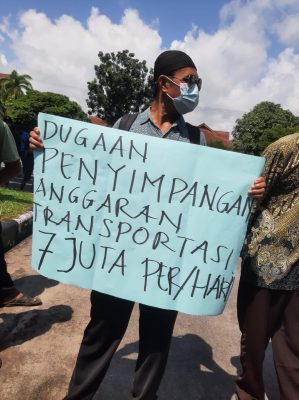 DUGAAN
PENYIMPANGAN
ANGGARAN
TRANSPORTASI
7 JUTA PER/HARI